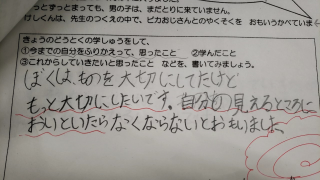 っとずっとまっても、男の子は、まだとりに来ていません。
けしくんは、先生のつくえの中で、ピカおじさんとのやくそくを おもいうかべていま
きょうのどうとくの学しゅうをして、
①今までの自分をふりかえって、思ったこと ②学んだこと
③これからしていきたいと思ったこと などを、書いてみましょう。
ぼくは、ものを大切にしてたけど
もっと大切にしたいです。自分の見えるところに
おいといたらなくならないとおもいました。